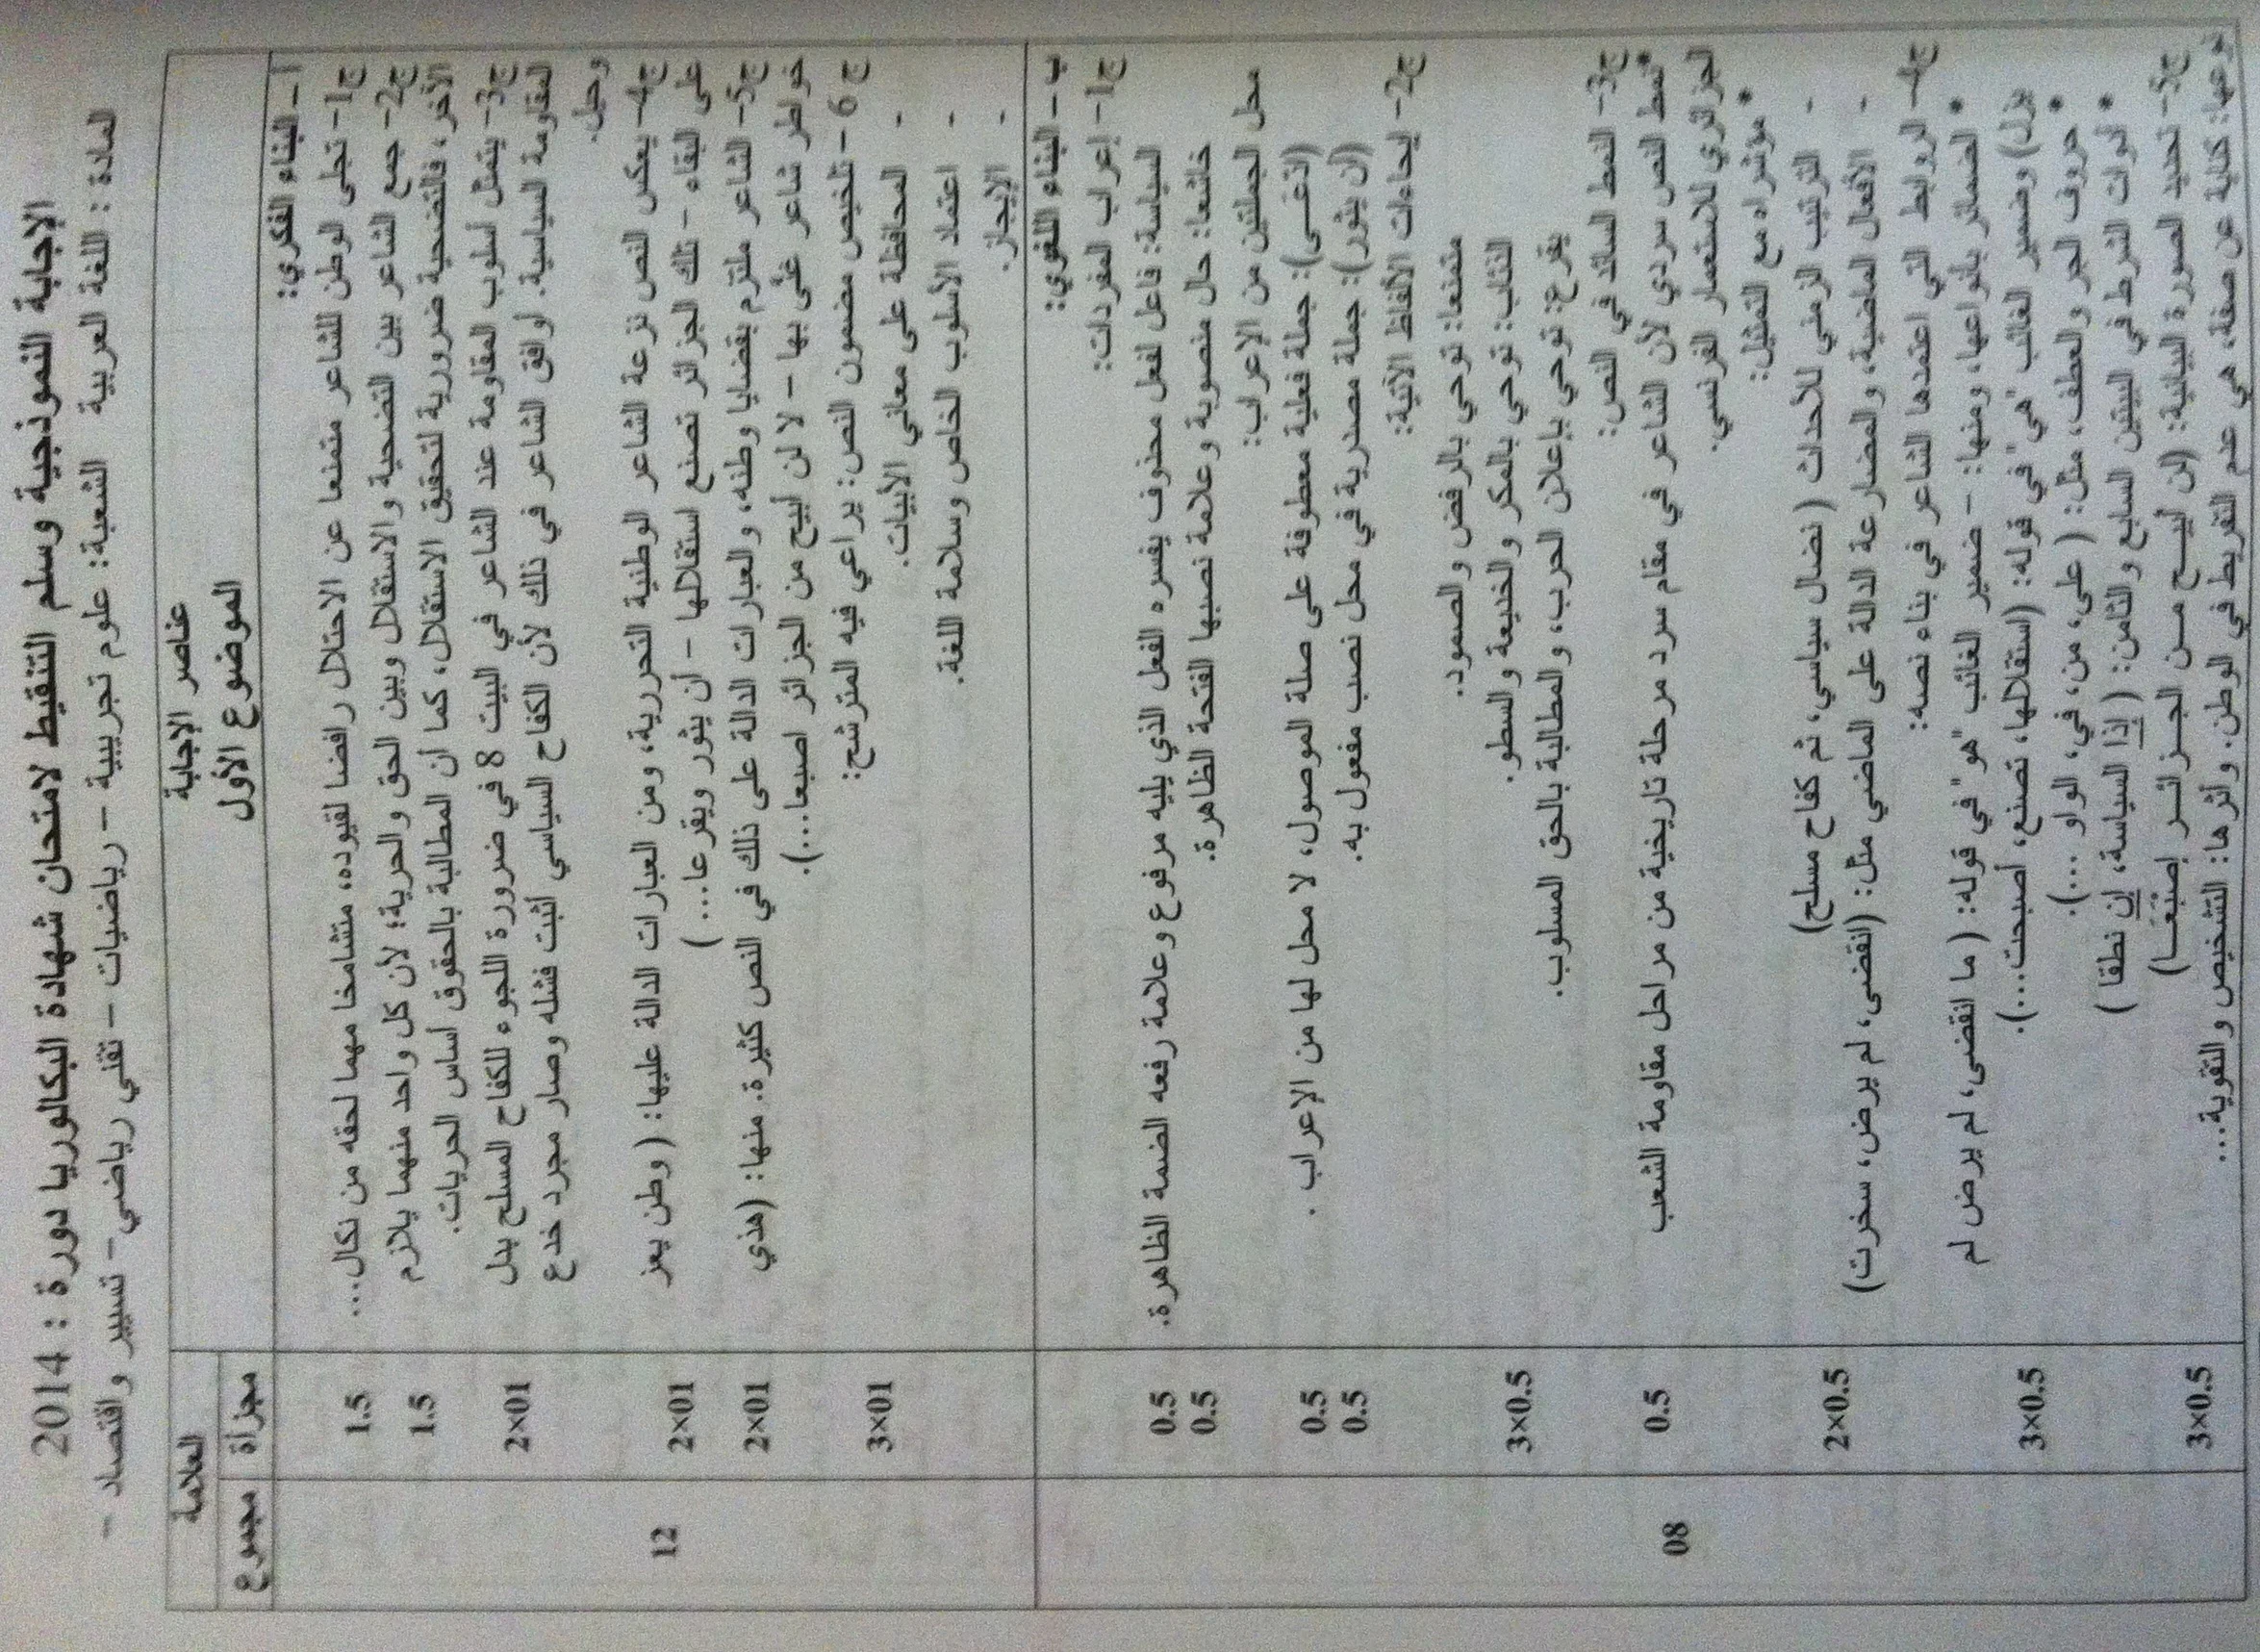 الإجابة النموذجية وسلم التنقيط لامتحان شهادة البكالوريا دورة : 2014
المادة : اللغة العربية الشعبة: علوم تجريبية – رياضيات – تقني رياضي– تسيير واقتصاد –
العلامة
عناصر الإجابة
مجموع مجزأة
الموضوع الأول
أ – البناء الفكري:
ج1- تجلى الوطن للشاعر متمنعا عن الاحتلال رافضا لقيوده، متشامخا مهما لحقه من نكال... 1.5
ج2- جمع الشاعر بين التضحية والاستقلال وبين الحق والحرية؛ لأن كل واحد منهما يلازم
الآخر، فالتضحية ضرورية لتحقيق الاستقلال، كما أن المطالبة بالحقوق أساس الحريات. 1.5
ج3- يتمثل أسلوب المقاومة عند الشاعر في البيت 8 في ضرورة اللجوء للكفاح المسلح بدل
المقاومة السياسية. أوافق الشاعر في ذلك لأن الكفاح السياسي أثبت فشله وصار مجرد خدع 2×01
وحيل.
ج4- يعكس النص نزعة الشاعر الوطنية التحررية، ومن العبارات الدالة عليها: ( وطن يعز
على البقاء – تلك الجزائر تصنع استقلالها – أن يثور ويقرعا... ) 2×01
12
ج5- الشاعر ملتزم بقضايا وطنه، والعبارات الدالة على ذلك في النص كثيرة. منها: (هذي
خواطر شاعر غنّى بها – لا لن أبيح من الجزائر اصبعا...). 2×01
ج 6 – تلخيص مضمون النص: يراعي فيه المترشح: 3×01
- المحافظة على معاني الأبيات.
- اعتماد الأسلوب الخاص وسلامة اللغة.
- الإيجاز.
ب – البناء اللغوي:
ج1- إعراب المفردات:
السياسة: فاعل لفعل محذوف يفسره الفعل الذي يليه مرفوع وعلامة رفعه الضمة الظاهرة. 0.5
خاشعا: حال منصوبة وعلامة نصبها الفتحة الظاهرة. 0.5
محل الجملتين من الإعراب:
(ادّعى): جملة فعلية معطوفة على صلة الموصول، لا محل لها من الإعراب . 0.5
(أن يثور): جملة مصدرية في محل نصب مفعول به. 0.5
ج2- إيحاءات الألفاظ الآتية:
متمنعا: توحي بالرفض والصمود.
الذئاب: توحي بالمكر والخديعة والسطو. 3×0.5
يقرع: توحي بإعلان الحرب، والمطالبة بالحق المسلوب.
ج3- النمط السائد في النص:
*نمط النص سردي لأن الشاعر في مقام سرد مرحلة تاريخية من مراحل مقاومة الشعب 0.5
الجزائري للاستعمار الفرنسي. 08
* مؤشراه مع التمثيل:
- الترتيب الزمني للأحداث ( نضال سياسي، ثم كفاح مسلح)
- الأفعال الماضية، والمضارعة الدالة على الماضي مثل: (انقضى، لم يرض، سخرت) 2×0.5
ج4- الروابط التي اعتمدها الشاعر في بناء نصه:
* الضمائر بأنواعها، ومنها: – ضمير الغائب "هو" في قوله: ( ما انقضى، لم يرض لم
يزل) وضمير الغائب "هي" في قوله: (استقلالها، تصنع، أصبحت...).
* حروف الجر والعطف، مثل: ( على، من، في، الواو ...). 3×0.5
* أدوات الشرط في البيتين السابع والثامن: ( إذا السياسة، إن نطقا )
ج5- تحديد الصورة البيانية: (لن أبيـح مـن الجـزائـر إصبَعـا)
نوعها: كناية عن صفة، هي عدم التفريط في الوطن. وأثرها: التشخيص والتقوية... 3×0.5